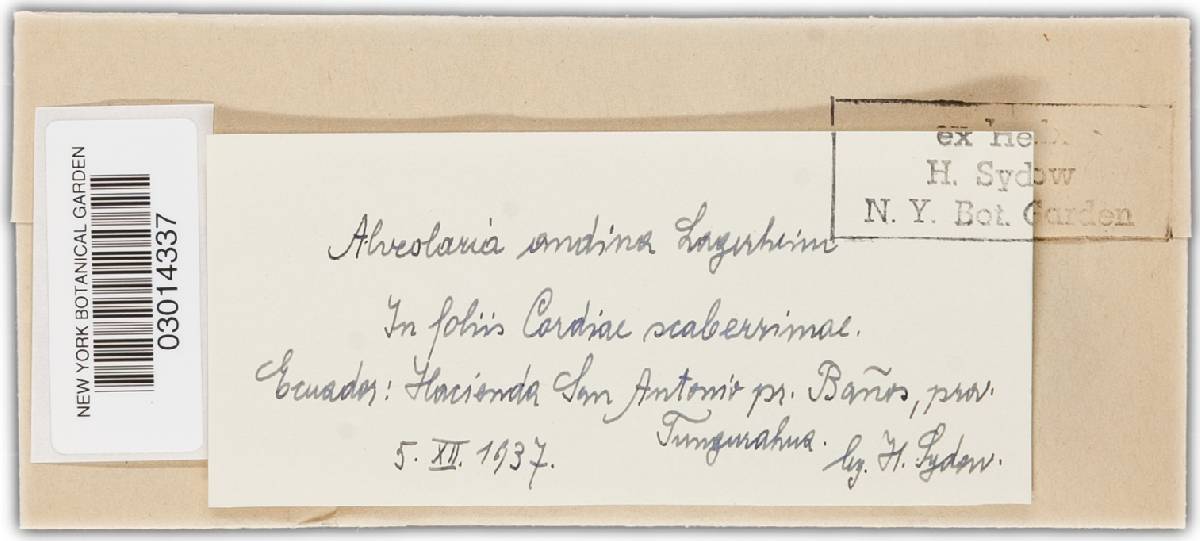 NEW YORK BOTANICAL GARDEN
03014337
ex Herb.
H. Sydow
N. Y. Bot. Garden
Alveolaria andina Lagerheim
In foliis Cordiae scaberrimae.
Ecuador: Hacienda San Antonio pr. Baños, prov.
Tungurahua.
5. XII. 1937.
lg. H. Sydow.